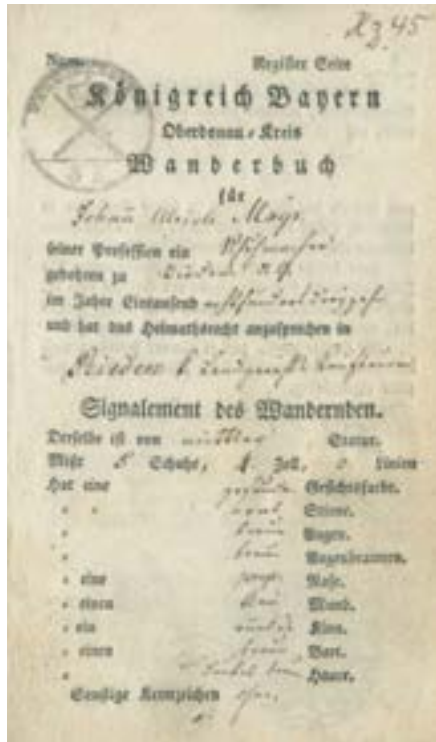 Xz. 45
Register Seite
Königreich Bayern
Oberdonau-Kreis
Wanderbuch
für
Johann Ulrich Mayr
seiner Profession ein Schuhmacher
gebohren zu
im Jahre Eintausend achthundert dreyzehn
und hat das Heimathsrecht anzusprechen in
Rieden k. Landgerichts
Signalement des Wandernden.
Derselbe ist von mittler Statur.
Mißt 5 Schuhe, Zoll, 0 Linien
Hat eine gesunde Gesichtsfarbe.
" " Stirne.
" braun Augen.
" braun Augenbraunen.
" eine Nase.
" einen Mund.
" ein Kinn.
" einen Bart.
" Haare.
Sonstige Kennzeichen